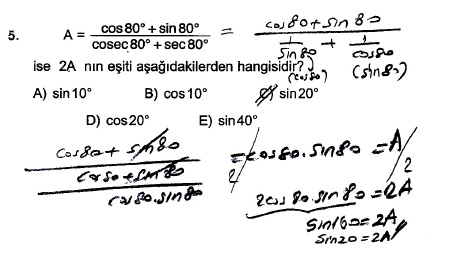 5. A = cos80° + sin80° / cosec80° + sec80° = cos80 + sin80 / 1/sin80 + 1/cos80
(cos80) (sin80)
ise 2A nın eşiti aşağıdakilerden hangisidir?
A) sin10° B) cos10° C) sin20°
D) cos20° E) sin40°
cos80 + sin80 / cos80 + sin80 / cos80.sin80 = cos80.sin80 = A
2 2
2cos80.sin80 = 2A
sin160 = 2A
sin20 = 2A